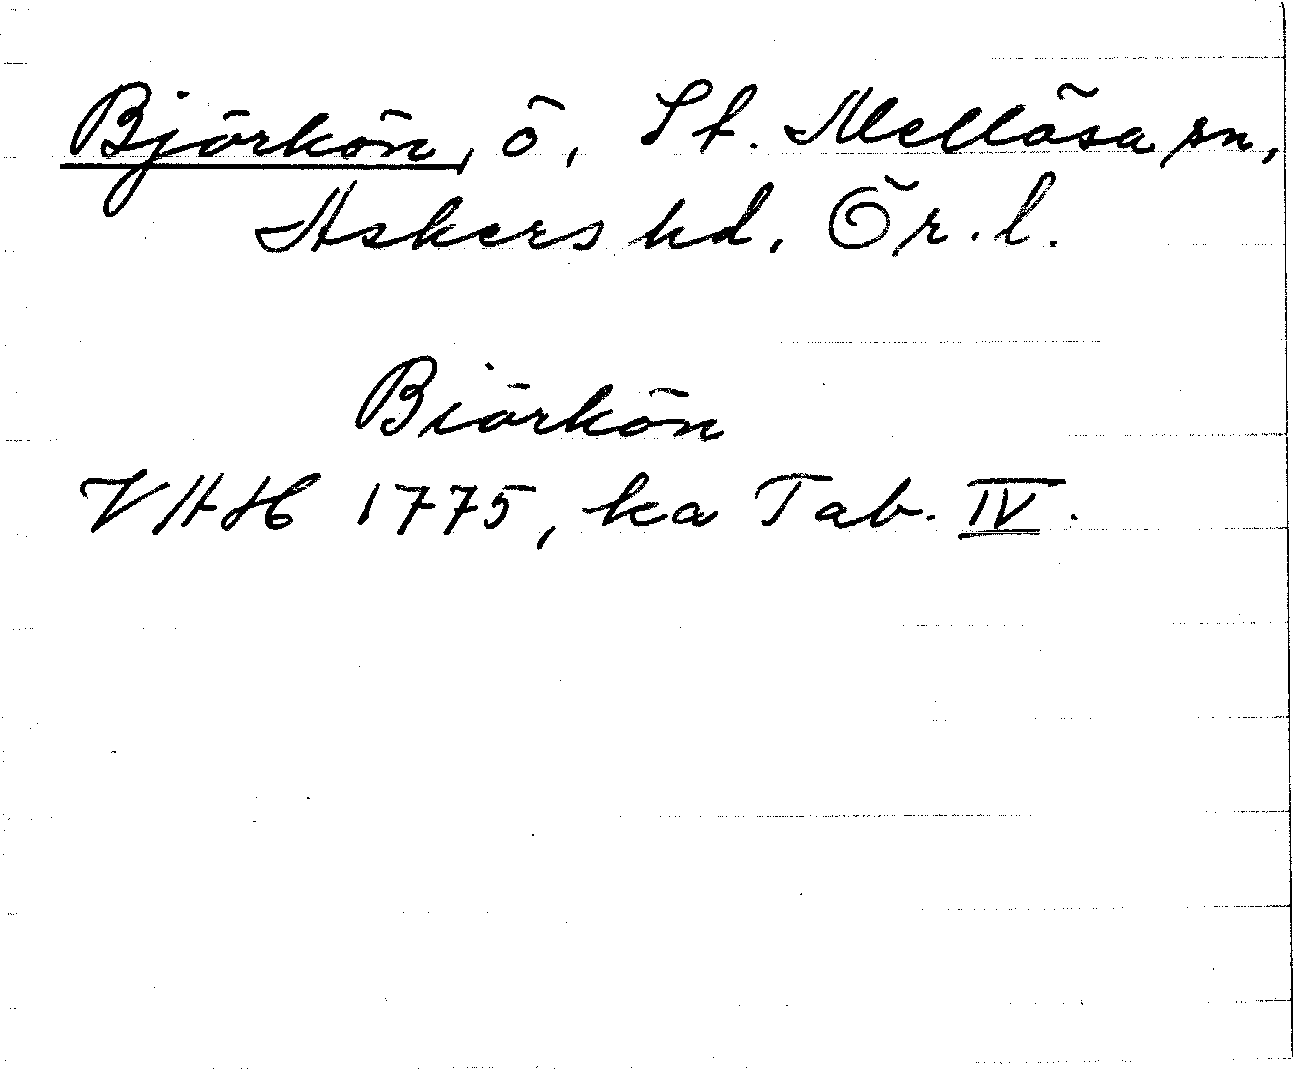 Björkön, ö, St. Mellösa sn,
Askers hd. Ör. l.
Biörkön
VAH 1775, ka Tab. IV.